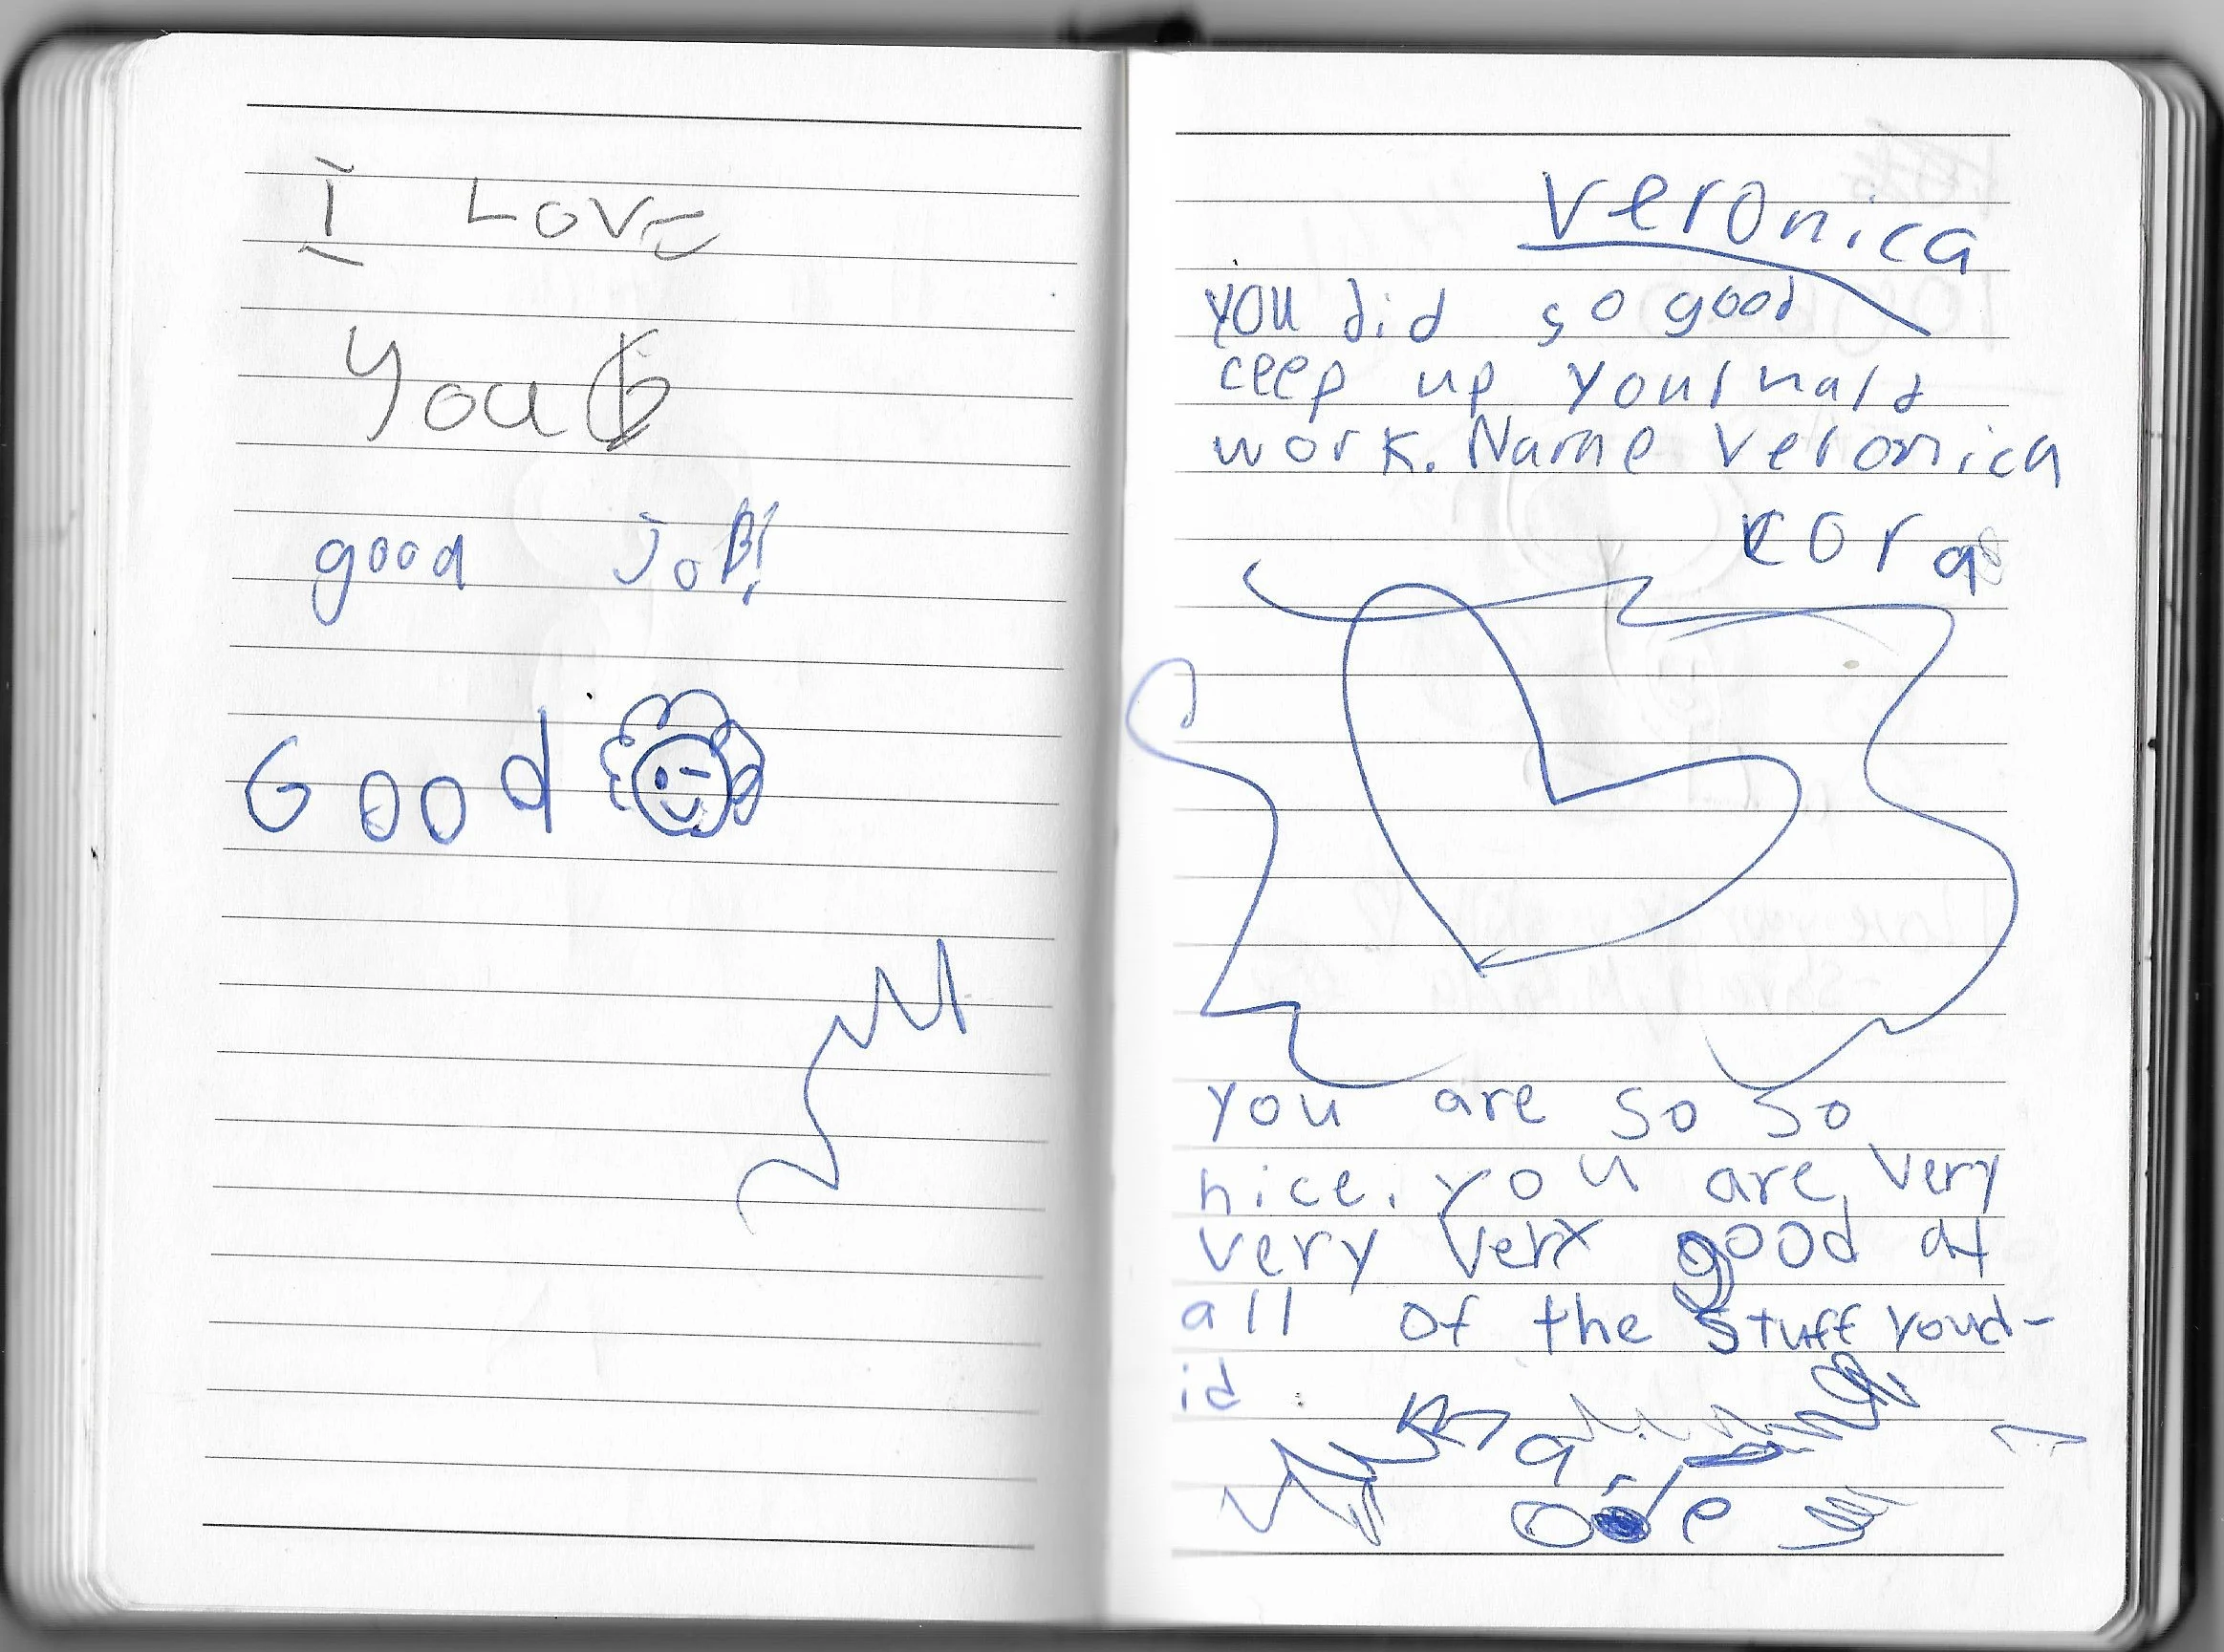 I LOVE
You
good JoB!
Good
Veronica
you did so good
ceep up your hard
work. Name Veronica
Kora
you are so so
nice. you are very
very very good at
all of the stuff youd-
id.